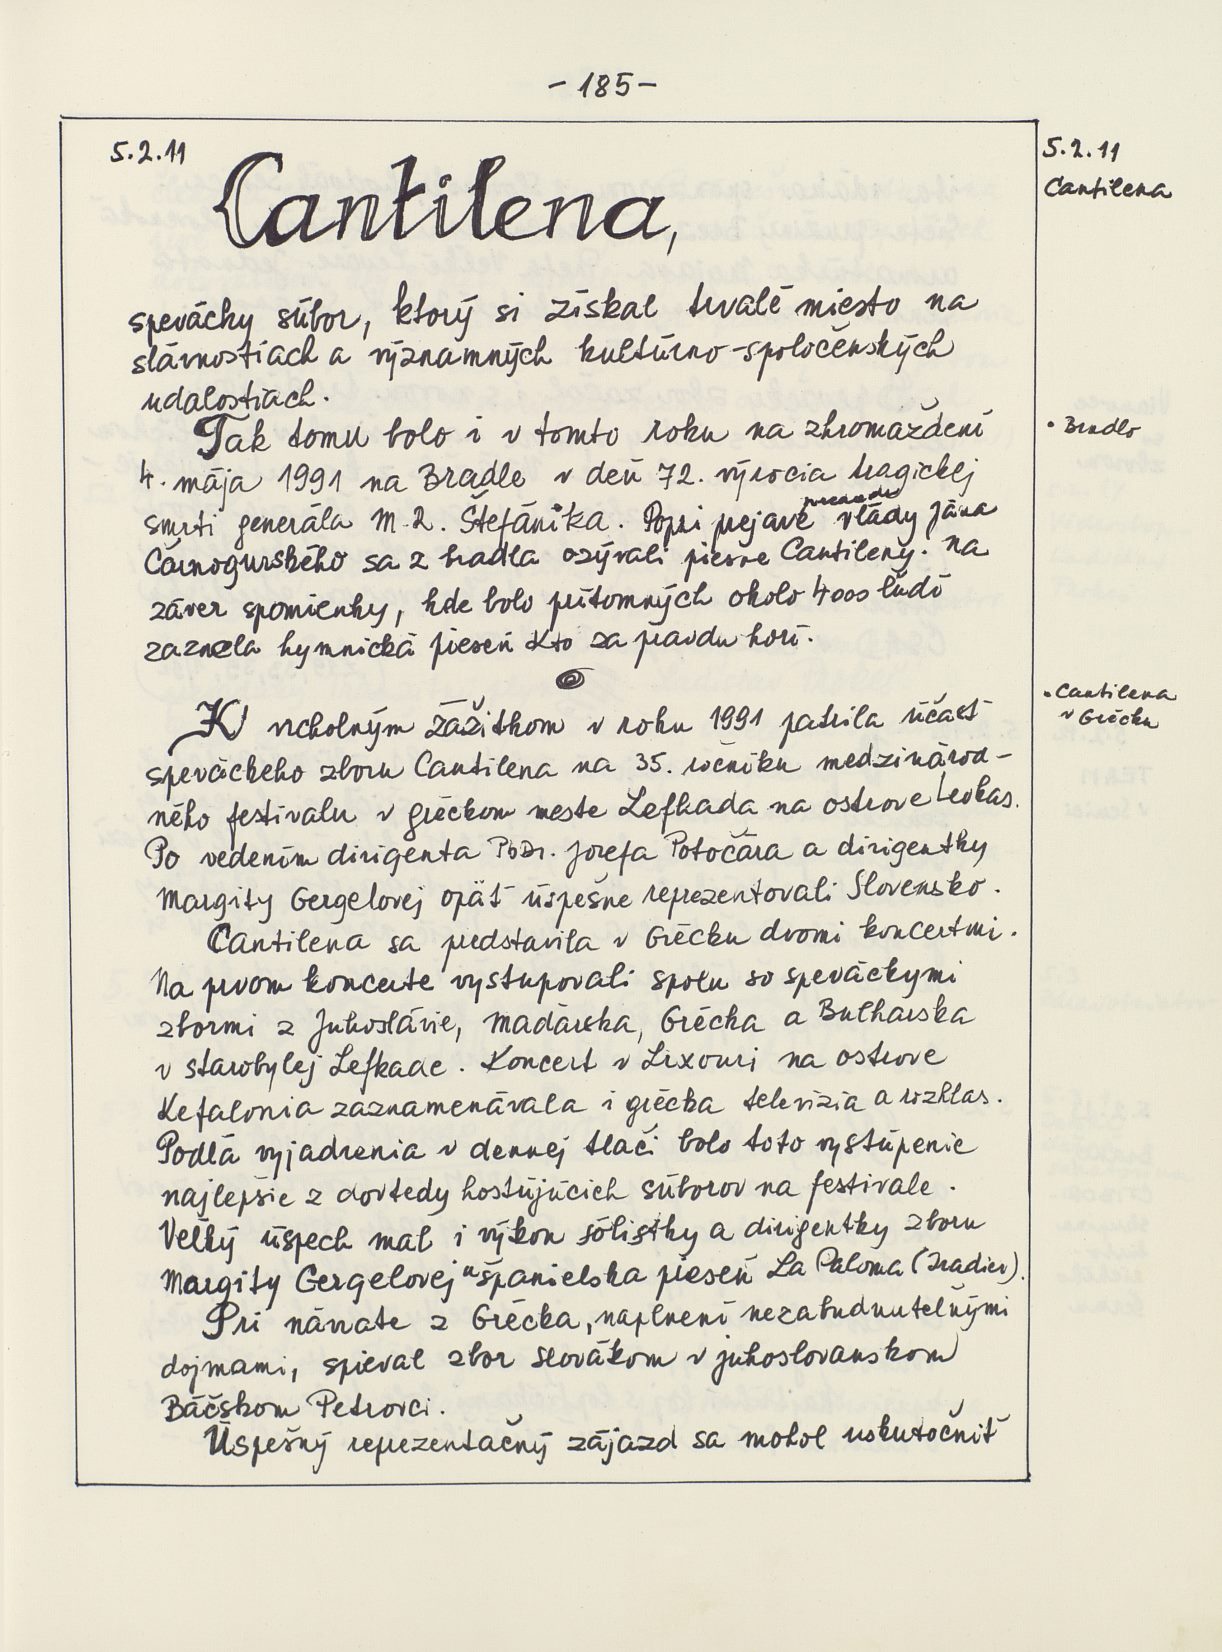 - 185 -
5.2.11
5.2.11
Cantilena
Cantilena,
spevácky súbor, ktorý si získal trvalé miesto na
slávnostiach a významných kultúrno-spoločenských
udalostiach.
Tak tomu bolo i v tomto roku na zhromaždení
• Bradlo
4. mája 1991 na Bradle v deň 72. výročia tragickej
smrti generála M. R. Štefánika. Popri prejave vlády Jána
Čarnogurského sa z bradla ozývali piesne Cantileny. Na
záver spomienky, kde bolo prítomných okolo 4000 ľudí
zaznela hymnická pieseň Kto za pravdu horí.
• Cantilena
v Grécku
K vrcholným zážitkom v roku 1991 patrila účasť
speváckeho zboru Cantilena na 35. ročníku medzinárod-
ného festivalu v gréckom meste Lefkada na ostrove Leokas.
Po vedením dirigenta PhDr. Jozefa Potočára a dirigentky
Margity Gergelovej opäť úspešne reprezentovali Slovensko.
Cantilena sa predstavila v Grécku dvomi koncertmi.
Na prvom koncerte vystupovali spolu so speváckymi
zbormi z Juhoslávie, Maďarska, Grécka a Bulharska
v starobylej Lefkade. Koncert v Lixouri na ostrove
Kefalonia zaznamenávala i grécka televízia a rozhlas.
Podľa vyjadrenia v dennej tlači bolo toto vystúpenie
najlepšie z dovtedy hosťujúcich súborov na festivale.
Veľký úspech mal i výkon sólistky a dirigentky zboru
Margity Gergelovej "španielska pieseň La Paloma (Iradier).
Pri návrate z Grécka, naplnení nezabudnuteľnými
dojmami, spieval zbor Slovákom v juhoslovanskom
Báčskom Petrovci.
Úspešný reprezentačný zájazd sa mohol uskutočniť